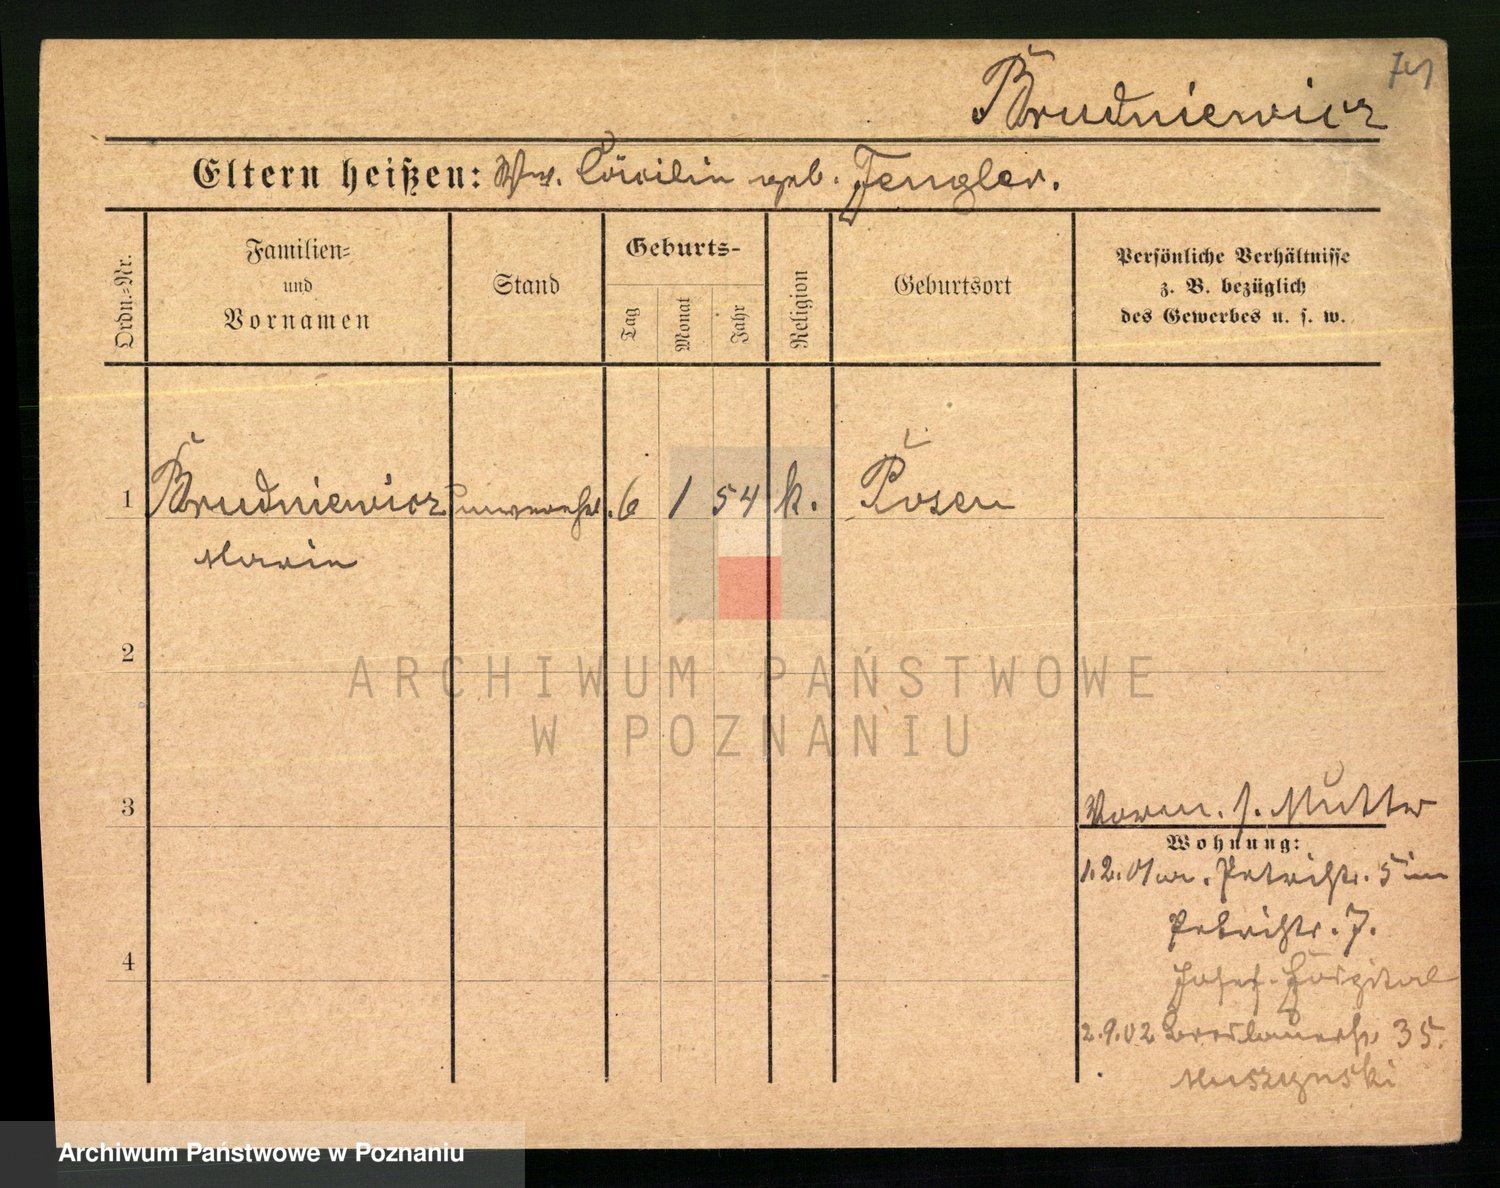 Brudniewicz
Eltern heißen: Ww. Cäcilie geb. Fengler.
Ordn.-Nr.
Familien-
und
Vornamen
Stand
Geburts-
Tag
Monat
Jahr
Religion
Geburtsort
Persönliche Verhältnisse
z. B. bezüglich
des Gewerbes u. s. w.
1 Brudniewicz unverehl. 6 1 54 k. Posen
Marie
2
ARCHIWUM PAŃSTWOWE
W POZNANIU
3
Vorm. s. Mutter
Wohnung:
1.2.01 Petristr. 5
Petristr. 7.
4
Josef-Hospital
2.9.02 Breslauerstr 35.
Muszynski
Archiwum Państwowe w Poznaniu